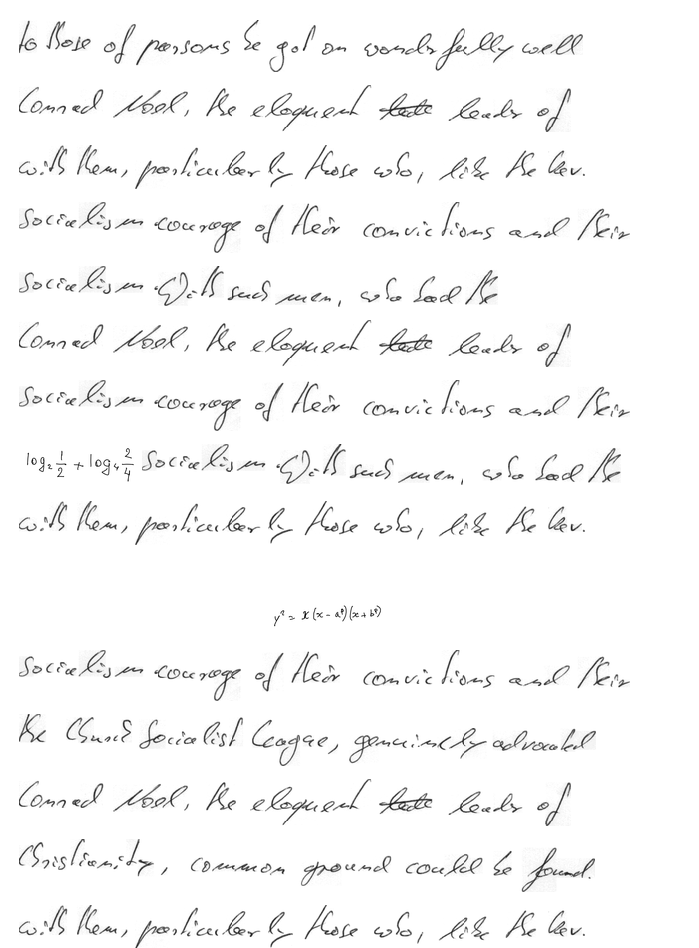 to those of parsons he got on wonderfully well
Conrad Noel, the eloquent leader of
with them, particularly those who, like the Rev.
Socialism courage of their convictions and their
Socialism. With such men, who had the
Conrad Noel, the eloquent leader of
Socialism courage of their convictions and their
log₂ 1/2 + log₄ 2/4 Socialism. With such men, who had the
with them, particularly those who, like the Rev.
y² = x(x - a^q)(x + b^q)
Socialism courage of their convictions and their
the Church Socialist League, genuinely advocated
Conrad Noel, the eloquent leader of
Christianity, common ground could be found.
with them, particularly those who, like the Rev.